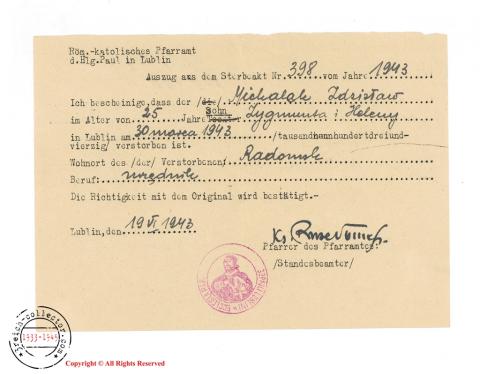 Röm.-katolisches Pfarramt
d.Hlg.Paul in Lublin
Auszug aus dem Sterbeakt Nr. 398 vom Jahre 1943
Ich bescheinige, dass der /die/ Michalak Zdzisław
im Alter von 25 Jahre Sohn Tocht. Zygmunta i Heleny
in Lublin am 30 marca 1943 /tausendneunhundertdreiund-
vierzig/ verstorben ist.
Wohnort des /der/ Verstorbenen Radomsk
Beruf: urzędnik
Die Richtigkeit mit dem Original wird bestätigt.-
Lublin,den 19 VI 1943
Ks
Pfarrer des Pfarramtes:
/Standesbeamter/
3reich-collector.com
1933-1945
Copyright © All Rights Reserved